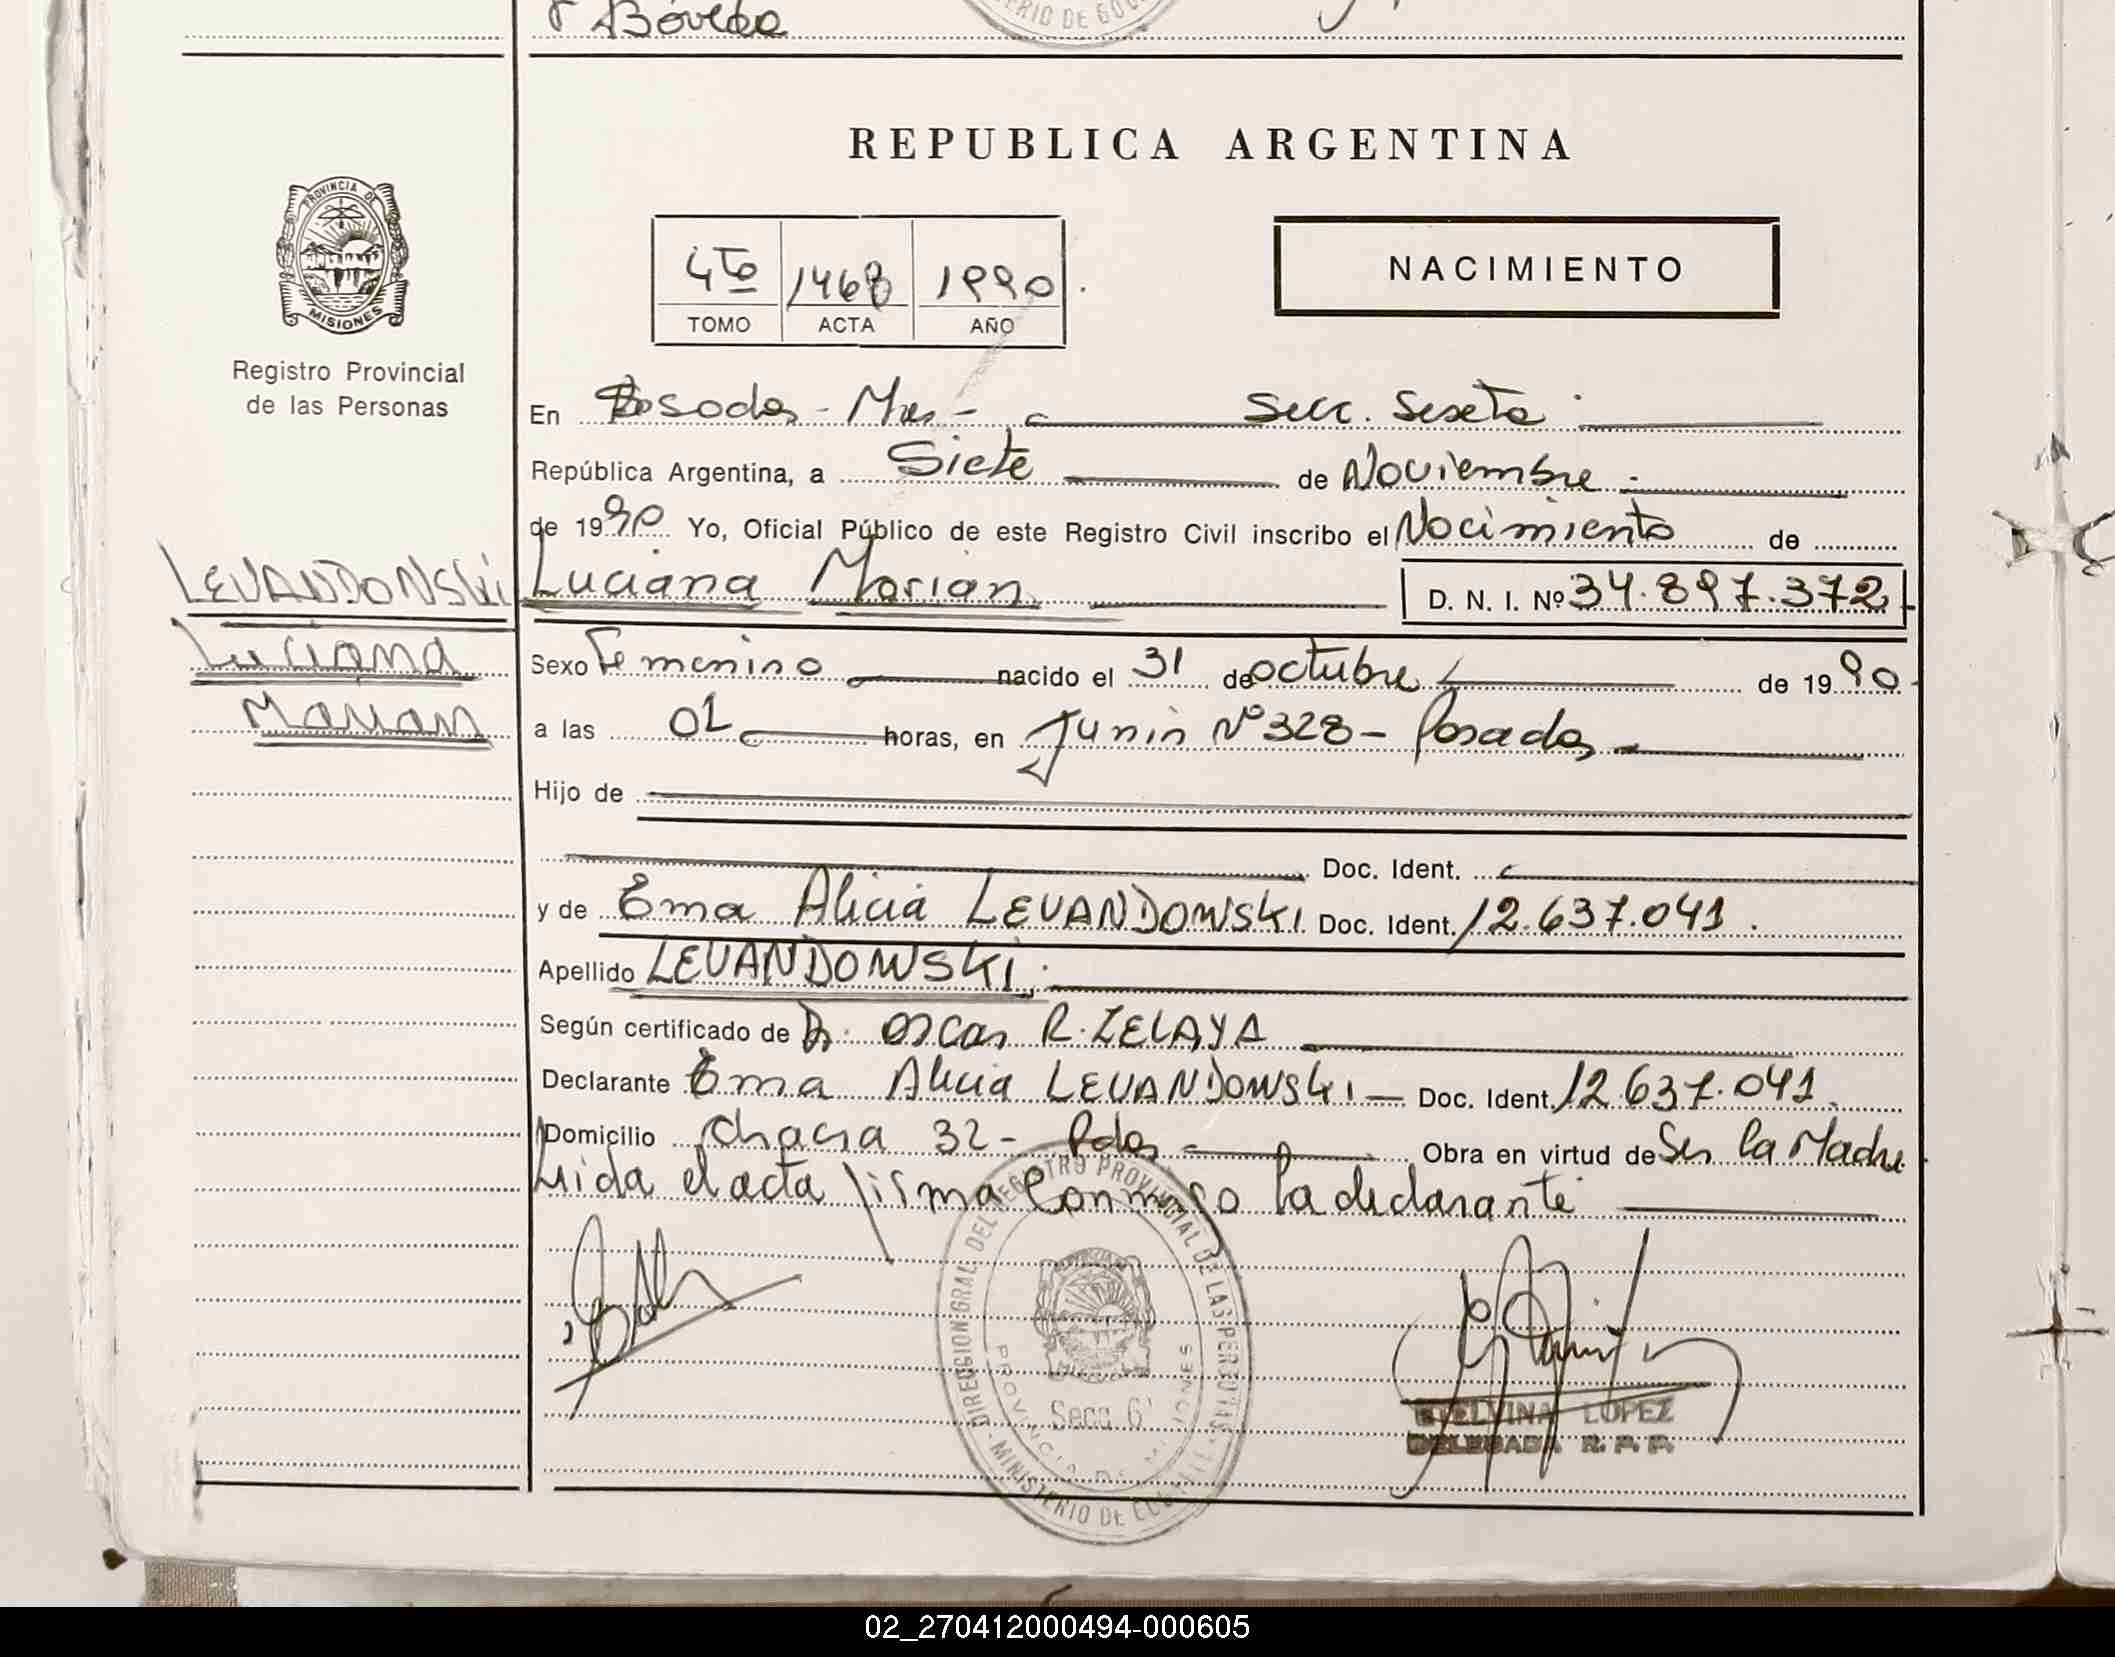 Bóveda
REPUBLICA ARGENTINA
PROVINCIA DE
MISIONES
Registro Provincial
de las Personas
4to 1468 1990.
TOMO ACTA AÑO
NACIMIENTO
En Posadas - Mnes - Secc. Sexta
República Argentina, a Siete de Noviembre
de 1990 Yo, Oficial Público de este Registro Civil inscribo el Nacimiento de
LEVANDOWSKI
Luciana
Marian
Luciana Marian D. N. I. Nº 34.897.372
Sexo Femenino nacido el 31 de octubre de 1990
a las 01 horas, en Junin Nº 328 - Posadas
Hijo de
Doc. Ident.
y de Ema Alicia LEVANDOWSKI Doc. Ident. 12.637.041.
Apellido LEVANDOWSKI.
Según certificado de Dr. Oscar R. ZELAYA
Declarante Ema Alicia LEVANDOWSKI - Doc. Ident. 12.637.041.
Domicilio chacra 32 - Pdas - Obra en virtud de Ser la Madre
Leida el acta firma conmigo la declarante
DIRECCION GRAL. DEL REGISTRO PROVINCIAL DE LAS PERSONAS - MINISTERIO DE
PROVINCIA DE MISIONES
Secc 6ª
ETELVINA LOPEZ
DELEGADA R. P. P.
02_270412000494-000605